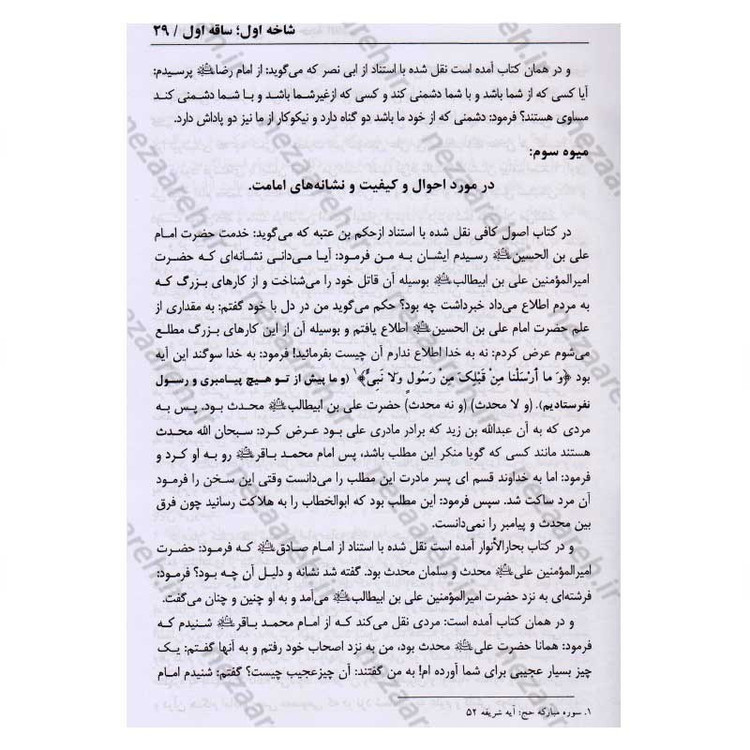 شاخه اول؛ ساقه اول / ۲۹
و در همان کتاب آمده است نقل شده با استناد از ابی نصر که می‌گوید: از امام رضا پرسیدم:
آیا کسی که از شما باشد و با شما دشمنی کند و کسی که ازغیرشما باشد و با شما دشمنی کند
مساوی هستند؟ فرمود: دشمنی که از خود ما باشد دو گناه دارد و نیکوکار از ما نیز دو پاداش دارد.
میوه سوم:
در مورد احوال و کیفیت و نشانه‌های امامت.
در کتاب اصول کافی نقل شده با استناد ازحکم بن عتبه که می‌گوید: خدمت حضرت امام
علی بن الحسین رسیدم ایشان به من فرمود: آیا می‌دانی نشانه‌ای که حضرت
امیرالمؤمنین علی بن ابیطالب بوسیله آن قاتل خود را می‌شناخت و از کارهای بزرگ که
به مردم اطلاع می‌داد خبرداشت چه بود؟ حکم می‌گوید من در دل با خود گفتم: به مقداری از
علم حضرت امام علی بن الحسین اطلاع یافتم و بوسیله آن از این کارهای بزرگ مطلع
می‌شوم عرض کردم: نه به خدا اطلاع ندارم آن چیست بفرمائید! فرمود: به خدا سوگند این آیه
بود ﴿وَ ما أرْسَلْنا مِنْ قَبْلِکَ مِنْ رَسُولٍ وَلا نَبیٍّ﴾۱ (و ما پیش از تو هیچ پیامبری و رسول
نفرستادیم). (و لا محدث) (و نه محدث) حضرت علی بن ابیطالب محدث بود. پس به
مردی که به آن عبدالله بن زید که برادر مادری علی بود عرض کرد: سبحان الله محدث
هستند مانند کسی که گویا منکر این مطلب باشد، پس امام محمد باقر رو به او کرد و
فرمود: اما به خداوند قسم ای پسر مادرت این مطلب را می‌دانست وقتی این سخن را فرمود
آن مرد ساکت شد. سپس فرمود: این مطلب بود که ابوالخطاب را به هلاکت رسانید چون فرق
بین محدث و پیامبر را نمی‌دانست.
و در کتاب بحارالأنوار آمده است نقل شده با استناد از امام صادق که فرمود: حضرت
امیرالمؤمنین علی محدث و سلمان محدث بود. گفته شد نشانه و دلیل آن چه بود؟ فرمود:
فرشته‌ای به نزد حضرت امیرالمؤمنین علی بن ابیطالب می‌آمد و به او چنین و چنان می‌گفت.
و در همان کتاب آمده است: مردی نقل می‌کند که از امام محمد باقر شنیدم که
فرمود: همانا حضرت علی محدث بود، من به نزد اصحاب خود رفتم و به آنها گفتم: یک
چیز بسیار عجیبی برای شما آورده ام! به من گفتند: آن چیزعجیب چیست؟ گفتم: شنیدم امام
۱. سوره مبارکه حج: آیه شریفه ۵۲
nezaareh.ir